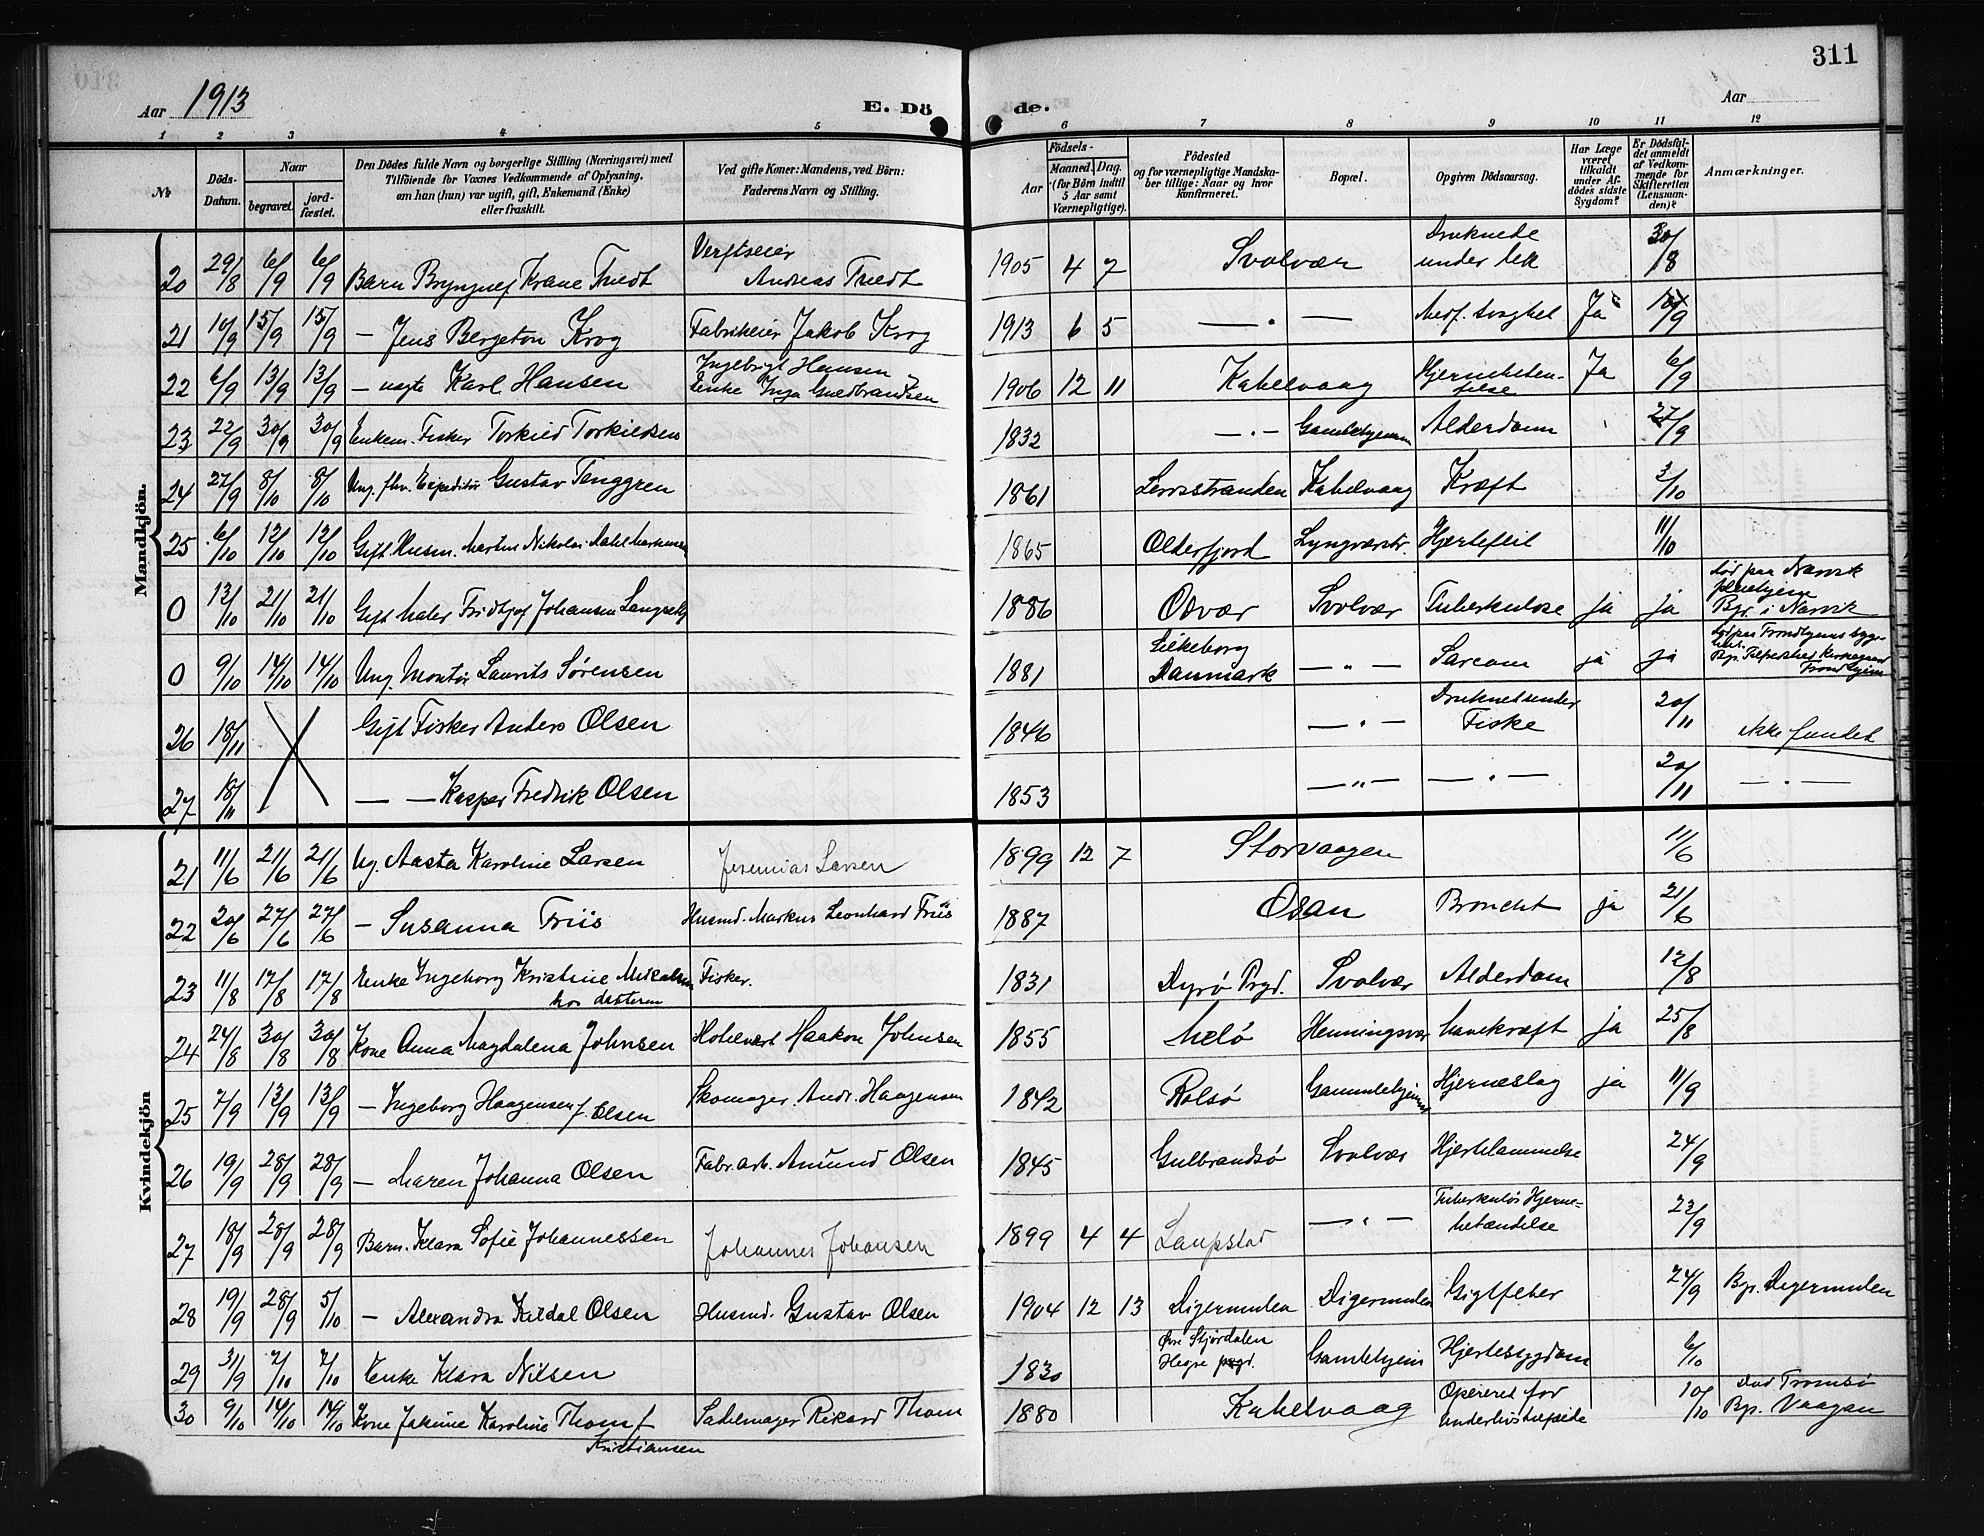 311
Aar 1913
E. Döde.
Aar
1 2 3 4 5 6 7 8 9 10 11 12
No
Döds-Datum.
Naar
begravet.
jordfæstet.
Den Dödes fulde Navn og borgerlige Stilling (Næringsvei) med Tilföiende for Voxnes Vedkommende af Oplysning, om han (hun) var ugift, gift, Enkemand (Enke) eller fraskilt.
Ved gifte Koner: Mandens, ved Börn: Faderens Navn og Stilling.
Födsels-
Aar
Maaned. Dag.
(for Börn indtil 5 Aar samt Værnepligtige).
Födested og for værnepligtige Mandskaber tillige: Naar og hvor konfirmeret.
Bopæl.
Opgiven Dödsaarsag.
Har Læge været tilkaldt under Afdödes sidste Sygdom?
Er Dödsfaldet anmeldt af Vedkommende for Skifteretten (Lensmanden)?
Anmærkninger.
Mandkjön.
20 29/8 6/9 6/9 Barn Brynjulf Krane Tredt Verftseier Andreas Tredt 1905 4 7 Svolvær Druknede under lek 30/8
21 10/9 15/9 15/9 — Jens Bergeton Krog Fabrikeier Jakob Krog 1913 6 5 — " — Medf. svaghet Ja 10/9
22 6/9 13/9 13/9 — uægte Karl Hansen Ingebrigt Hansen Enke Inga Guldbrandsen 1906 12 11 Kabelvaag Hjernebetendelse Ja 6/9
23 22/9 30/9 30/9 Enkem. Fisker Torkild Torkildsen 1832 — " — Gamlehjemm Alderdom 27/9
24 27/9 8/10 8/10 Ung. fhv. Expeditør Gustav Tenggren 1861 Kabelvaag Kræft 2/10
25 6/10 12/10 12/10 Gift Husm. Martin Nikolai Dahl 1865 Olderfjord Lyngværstr. Hjertefeil 11/10
0 13/10 21/10 21/10 Gift Maler Fridtjof Johansen 1886 Osvær Svolvær Tuberkulose ja ja død paa Narvik pleiehjem Bgr. i Narvik
0 9/10 14/10 14/10 Ung. Montør Laurits Sørensen 1881 Silkeborg Danmark — " — Sarcom ja ja død paa Trondhjems Bgr. Tilfredshed Kirkegaard Trondhjem
26 18/11 Gift Fisker Anders Olsen 1846 — " — Druknet under Fiske 20/11 ikke fundet
27 18/11 — — Kasper Fredrik Olsen 1853 — " — — " — 20/11 — " —
Kvindekjön
21 11/6 21/6 21/6 Ug. Aasta Karoline Larsen Jeremias Larsen 1899 12 7 Storvaagen 11/6
22 20/6 27/6 27/6 — Susanna Friis Husmd. Markus Leonhard Friis 1887 Osan Bronchit ja 21/6
23 11/8 17/8 17/8 Enke Ingeborg Kristine Mikalsen hos datteren Fisker. 1831 Dyrø Prgd. Svolvær Alderdom 12/8
24 24/8 30/8 30/8 Kone Anna Magdalena Johnsen Hotelvært Haakon Johnsen 1855 Melø Henningsvær Mavekræft ja 25/8
25 7/9 13/9 13/9 — Ingeborg Haagensen f. Olsen Skomager Andr. Haagensen 1842 Rolsø Gammlehjemmet Hjerneslag ja 11/9
26 19/9 28/9 28/9 — Maren Johanna Olsen Fabr. arb. Amund Olsen 1845 Gulbrandsø Svolvær Hjertelammelse 24/9
27 18/9 28/9 28/9 Barn. Klara Sofie Johannessen Johannes Johansen 1899 4 4 Laupstad — " — Tuberkuløs Hjernebetændelse 23/9
28 19/9 28/9 5/10 — Alexandra Kildal Olsen Husmd. Gustav Olsen 1904 12 13 Digermulen Digermulen Gigtfeber 24/9 Bgr. Digermulen
29 31/9 7/10 7/10 Enke Klara Nilsen 1830 Øvre Stjørdalen Hegre prgd. Gamlehjem Hjertesygdom 6/10
30 9/10 14/10 14/10 Kone Jakine Karoline Thom f. Kristiansen Sadelmager Rikard Thom 1880 Kabelvaag Opereret for Underlivstilfælde 10/10 Død Tromsø Bgr. Vaagan